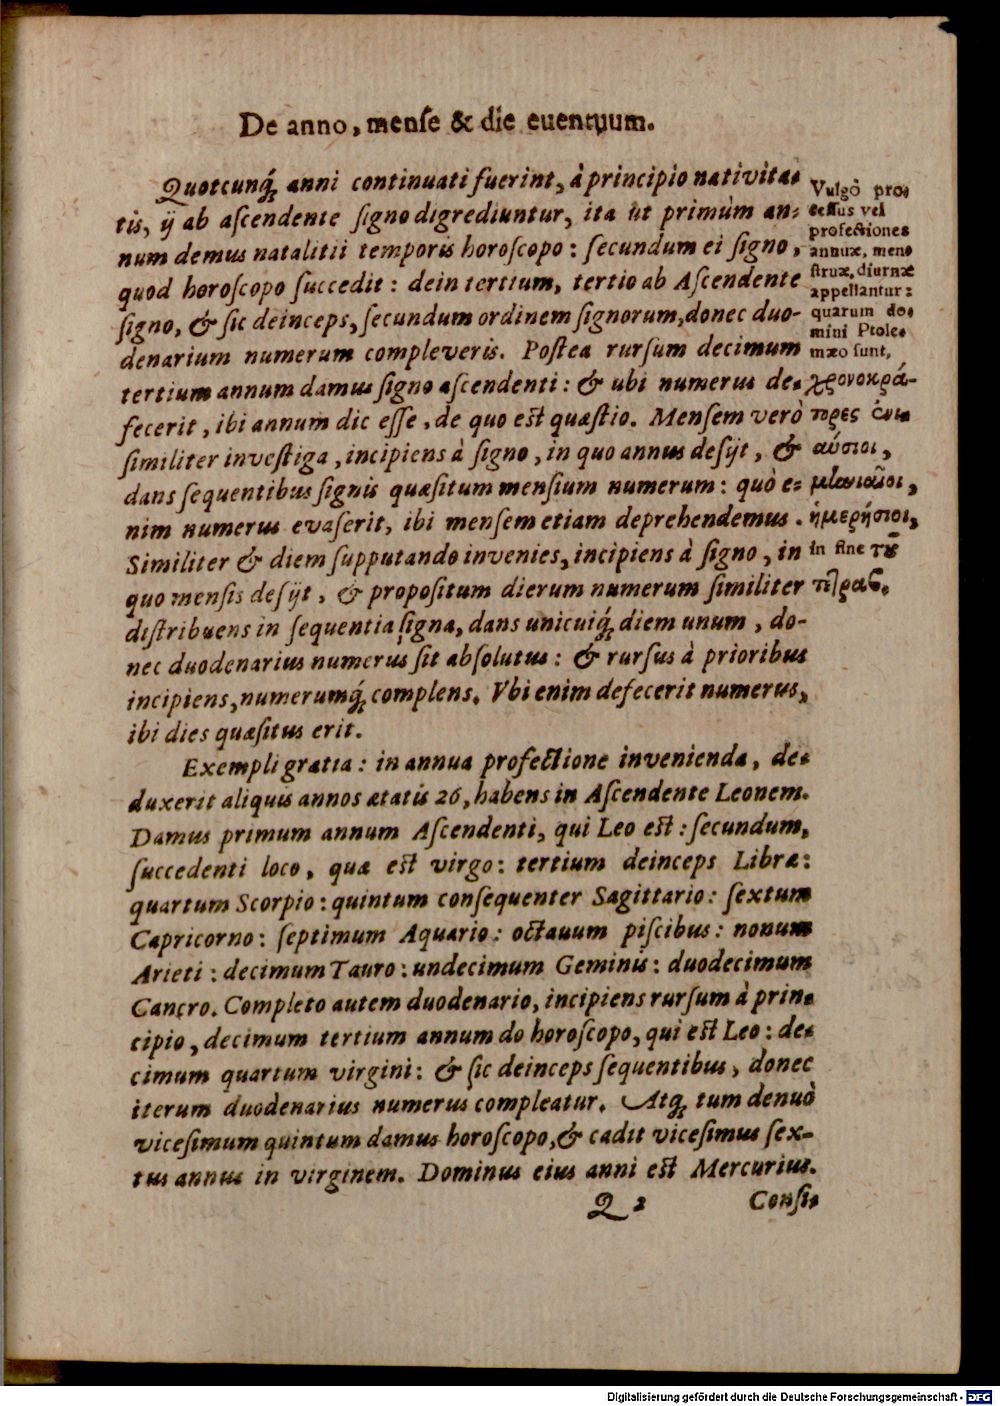 De anno, menſe & die euentuum.
Quotcunq́; anni continuati fuerint, à principio nativita-
tis, ij ab aſcendente ſigno digrediuntur, ita ut primùm an-
num demus natalitii temporis horoſcopo: ſecundum ei ſigno,
quod horoſcopo ſuccedit: dein tertium, tertio ab Aſcendente
ſigno, & ſic deinceps, ſecundum ordinem ſignorum, donec duo-
denarium numerum compleveris. Poſtea rurſum decimum
tertium annum damus ſigno aſcendenti: & ubi numerus de-
fecerit, ibi annum dic eſſe, de quo est quæſtio. Menſem verò
ſimiliter inveſtiga, incipiens à ſigno, in quo annus deſijt, &
dans ſequentibus ſignis quæſitum menſium numerum: quò e-
nim numerus evaſerit, ibi menſem etiam deprehendemus.
Similiter & diem ſupputando invenies, incipiens à ſigno, in
quo menſis deſijt, & propoſitum dierum numerum ſimiliter
diſtribuens in ſequentia ſigna, dans unicuiq́; diem unum, do-
nec duodenarius numerus ſit abſolutus: & rurſus à prioribus
incipiens, numerumq́; complens. Vbi enim defecerit numerus,
ibi dies quæſitus erit.
Vulgò pro-
ceſſus vel
profectiones
annuæ, men-
ſtruæ, diurnæ
appellantur:
quarum do-
mini Ptole-
mæo ſunt,
χρονοκρά-
τορες ἐνι-
αύσιοι,
μηνιαῖοι,
ἡμερήσιοι,
in fine τῦ
τετραβ.
Exempli gratia: in annua profectione invenienda, de-
duxerit aliquis annos ætatis 26, habens in Aſcendente Leonem.
Damus primum annum Aſcendenti, qui Leo est: ſecundum,
ſuccedenti loco, quæ est virgo: tertium deinceps Libræ:
quartum Scorpio: quintum conſequenter Sagittario: ſextum
Capricorno: ſeptimum Aquario: octauum piſcibus: nonum
Arieti: decimum Tauro: undecimum Geminis: duodecimum
Cancro. Completo autem duodenario, incipiens rurſum à prin-
cipio, decimum tertium annum do horoſcopo, qui est Leo: de-
cimum quartum virgini: & ſic deinceps ſequentibus, donec
iterum duodenarius numerus compleatur. Atq́; tum denuò
viceſimum quintum damus horoſcopo, & cadit viceſimus ſex-
tus annus in virginem. Dominus eius anni est Mercurius.
Q 2 Conſi-
Digitalisierung gefördert durch die Deutsche Forschungsgemeinschaft - DFG